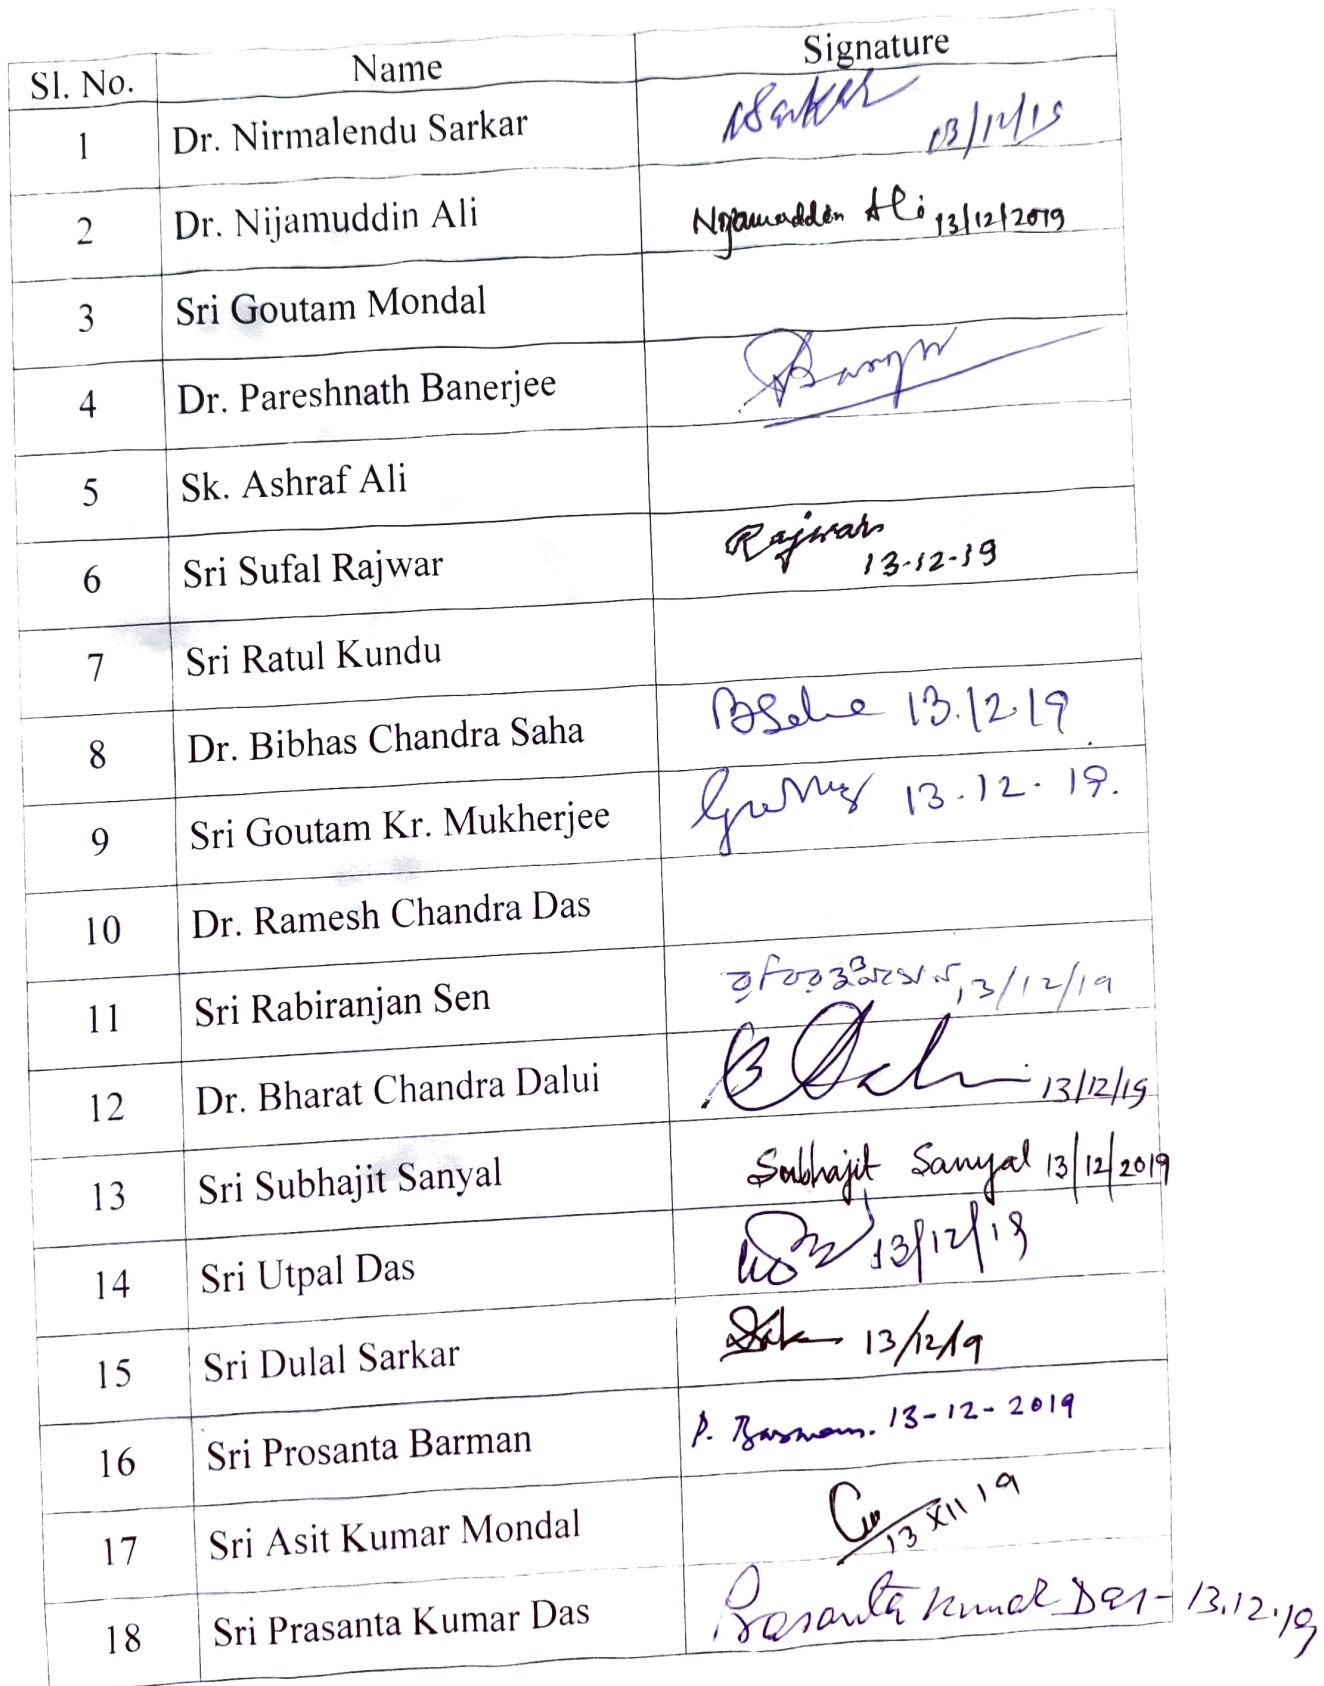 Sl. No. Name Signature
1 Dr. Nirmalendu Sarkar NSarkar 13/12/19
2 Dr. Nijamuddin Ali Nijamuddin Ali 13/12/2019
3 Sri Goutam Mondal
4 Dr. Pareshnath Banerjee
5 Sk. Ashraf Ali
6 Sri Sufal Rajwar Rajwar
13-12-19
7 Sri Ratul Kundu
8 Dr. Bibhas Chandra Saha BSaha 13.12.19
9 Sri Goutam Kr. Mukherjee 13-12-19.
10 Dr. Ramesh Chandra Das
11 Sri Rabiranjan Sen 13/12/19
12 Dr. Bharat Chandra Dalui 13/12/19
13 Sri Subhajit Sanyal Subhajit Sanyal 13/12/2019
14 Sri Utpal Das 13/12/19
15 Sri Dulal Sarkar 13/12/19
16 Sri Prosanta Barman P. Barman. 13-12-2019
17 Sri Asit Kumar Mondal 13 XII 19
18 Sri Prasanta Kumar Das Prasanta Kumar Das - 13.12.19